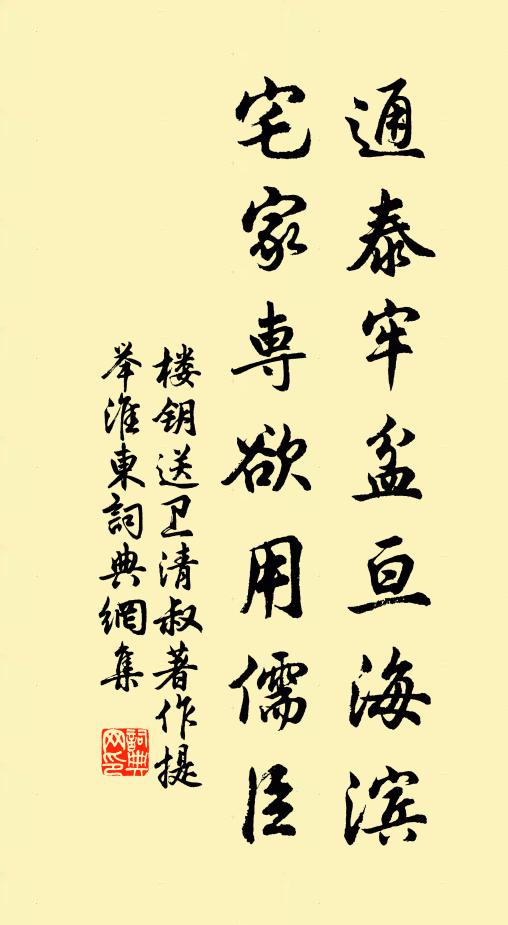 通泰牢盆亘海滨
宅家専欲用儒臣
楼钥送卫清叔著作提
举淮東詞典網集
詞典网印